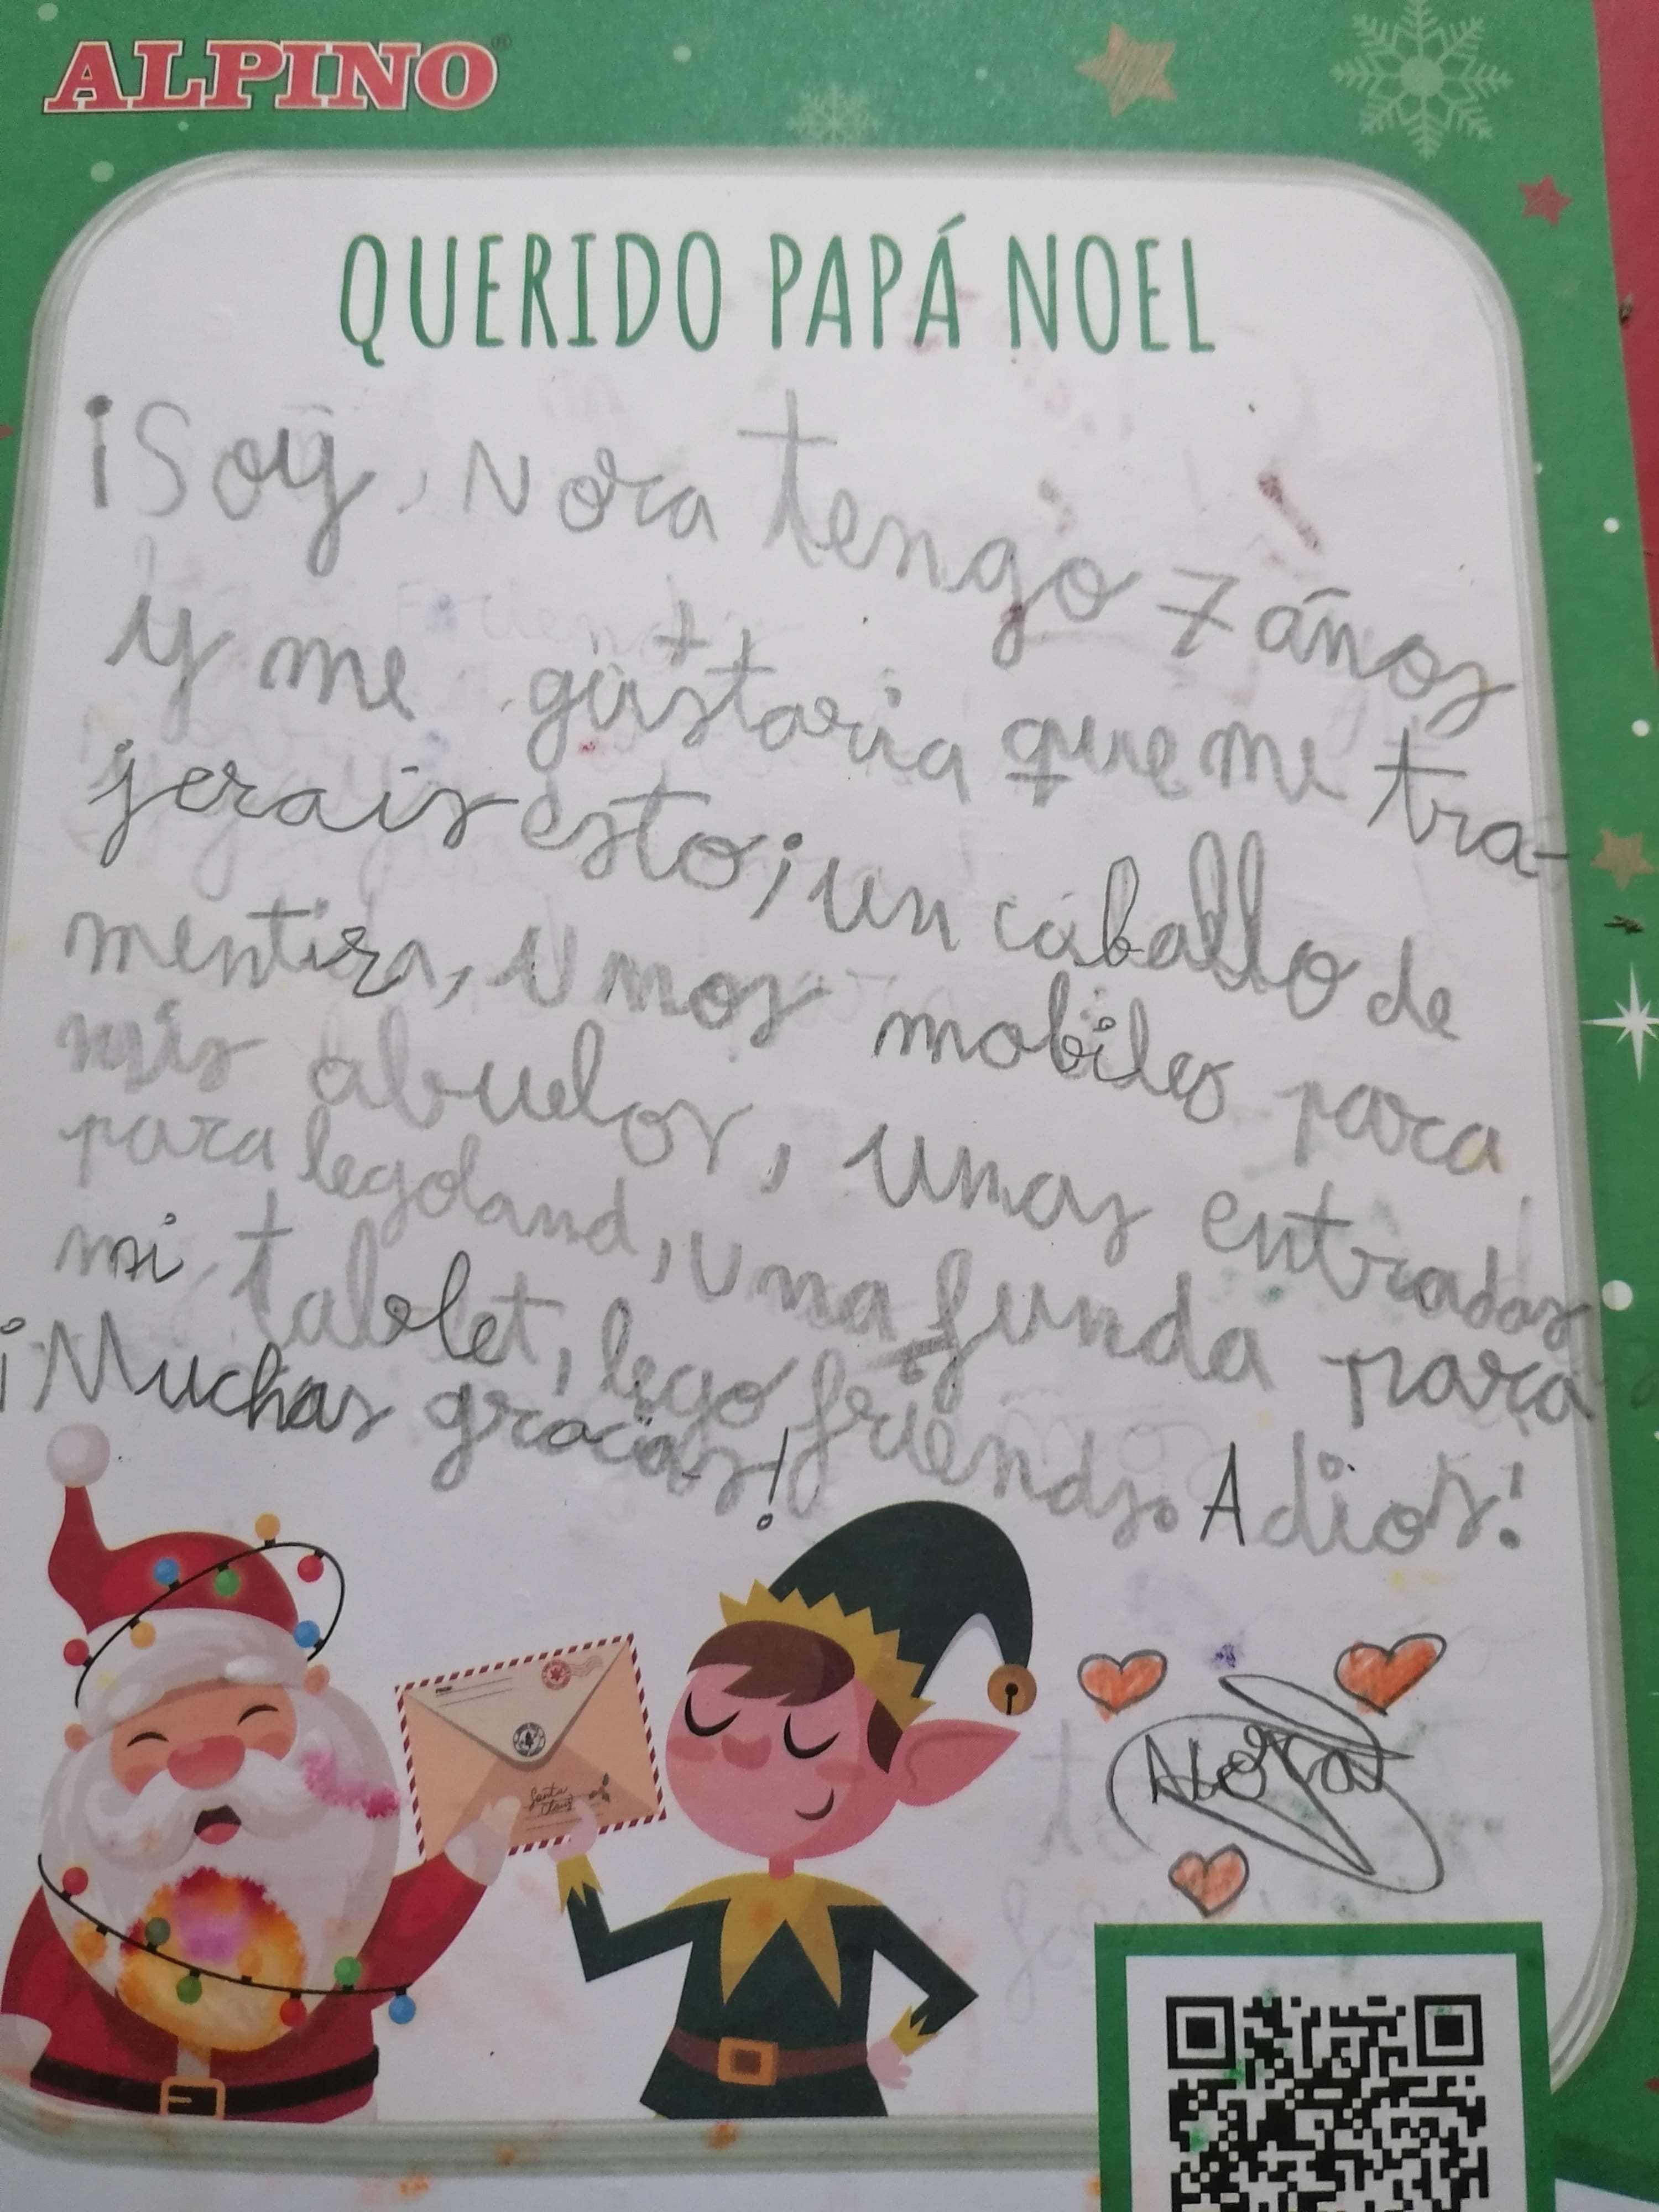 ALPINO
QUERIDO PAPÁ NOEL
¡Soy, Nora tengo 7 años
y me gustaria que me tra-
jerais esto; un caballo de
mentira, unos mobiles para
mis abuelos, unas entradas
para legoland, una funda para
mi tablet, lego friends. Adios!
¡Muchas gracias!
Santa
Claus
Nora